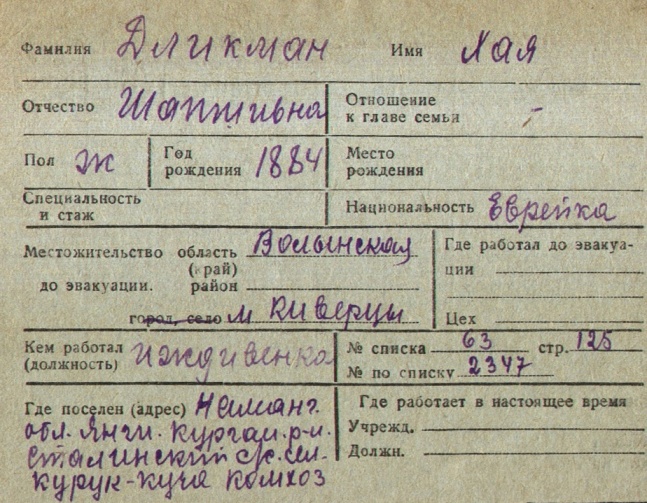 Фамилия Дликман Имя Хая
Отчество Шапживна Отношение к главе семьи -
Пол ж Год рождения 1884 Место рождения
Специальность и стаж Национальность Еврейка
Местожительство область Волынская Где работал до эвакуа-
(край) ции
до эвакуации. район
город, село м Киверцы Цех
Кем работал (должность) иждивенка № списка 63 стр. 125
№ по списку 2347
Где поселен (адрес) Наманг. Где работает в настоящее время
обл. Янги-Курган. р-н. Учрежд.
Сталинский с/с. Должн.
курук-куча